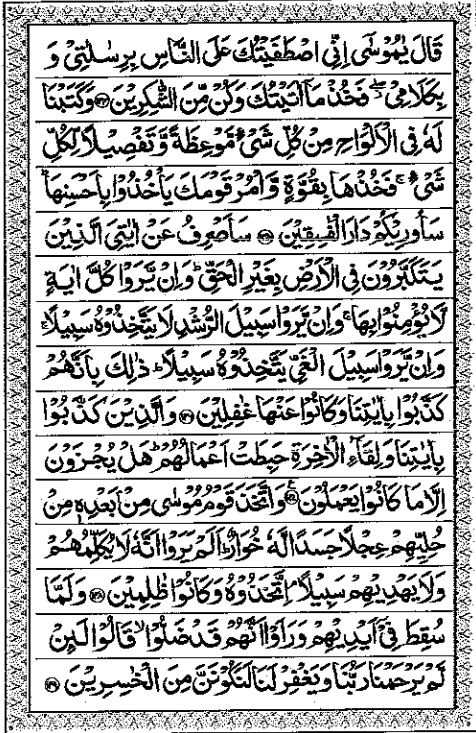 قَالَ يٰمُوْسٰٓى اِنِّى اصْطَفَيْتُكَ عَلَى النَّاسِ بِرِسٰلٰتِىْ وَ
بِكَلَامِىْ ۖ فَخُذْ مَاۤ اٰتَيْتُكَ وَكُنْ مِّنَ الشّٰكِرِيْنَ ۝ وَكَتَبْنَا
لَهٗ فِى الْاَلْوَاحِ مِنْ كُلِّ شَىْءٍ مَّوْعِظَةً وَّتَفْصِيْلًا لِّكُلِّ
شَىْءٍ ۚ فَخُذْهَا بِقُوَّةٍ وَّاْمُرْ قَوْمَكَ يَاْخُذُوْا بِاَحْسَنِهَا ؕ
سَاُورِيْكُمْ دَارَ الْفٰسِقِيْنَ ۝ سَاَصْرِفُ عَنْ اٰيٰتِىَ الَّذِيْنَ
يَتَكَبَّرُوْنَ فِى الْاَرْضِ بِغَيْرِ الْحَقِّ ؕ وَاِنْ يَّرَوْا كُلَّ اٰيَةٍ
لَّا يُؤْمِنُوْا بِهَا ۚ وَاِنْ يَّرَوْا سَبِيْلَ الرُّشْدِ لَا يَتَّخِذُوْهُ سَبِيْلًا ۚ
وَاِنْ يَّرَوْا سَبِيْلَ الْغَىِّ يَتَّخِذُوْهُ سَبِيْلًا ؕ ذٰلِكَ بِاَنَّهُمْ
كَذَّبُوْا بِاٰيٰتِنَا وَكَانُوْا عَنْهَا غٰفِلِيْنَ ۝ وَالَّذِيْنَ كَذَّبُوْا
بِاٰيٰتِنَا وَلِقَآءِ الْاٰخِرَةِ حَبِطَتْ اَعْمَالُهُمْ ؕ هَلْ يُجْزَوْنَ
اِلَّا مَا كَانُوْا يَعْمَلُوْنَ ۝ وَاتَّخَذَ قَوْمُ مُوْسٰى مِنْۢ بَعْدِهٖ مِنْ
حُلِيِّهِمْ عِجْلًا جَسَدًا لَّهٗ خُوَارٌ ؕ اَلَمْ يَرَوْا اَنَّهٗ لَا يُكَلِّمُهُمْ
وَلَا يَهْدِيْهِمْ سَبِيْلًا ۘ اِتَّخَذُوْهُ وَكَانُوْا ظٰلِمِيْنَ ۝ وَلَمَّا
سُقِطَ فِىْۤ اَيْدِيْهِمْ وَرَاَوْا اَنَّهُمْ قَدْ ضَلُّوْا ۙ قَالُوْا لَئِنْ
لَّمْ يَرْحَمْنَا رَبُّنَا وَيَغْفِرْ لَنَا لَنَكُوْنَنَّ مِنَ الْخٰسِرِيْنَ ۝